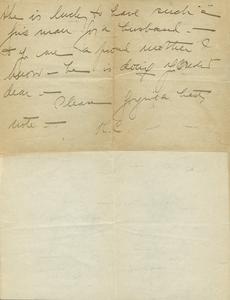 She is lucky to have such a
fine man for a husband —
& you are a proud mother I
know — he is doing splendid
dear —
Please forgive hasty
note —
K.C